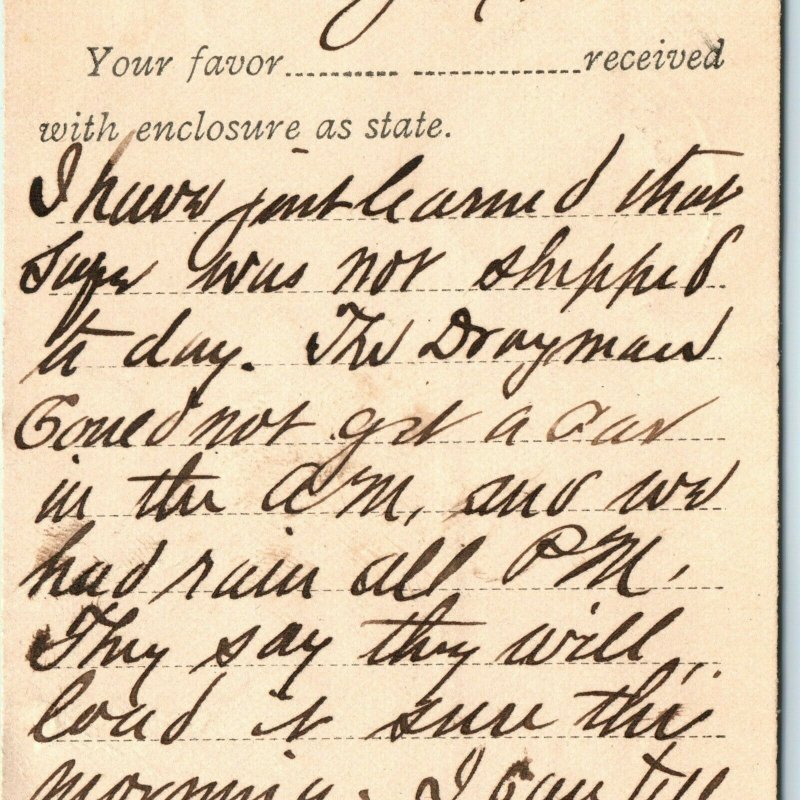 Your favor.......... ..............received
with enclosure as state.
I have just learned that
Safe was not shipped
to day. The Drayman
Could not get a Car
in the AM, and we
had rain all PM.
They say they will
load it sure this
morning. I Can tell